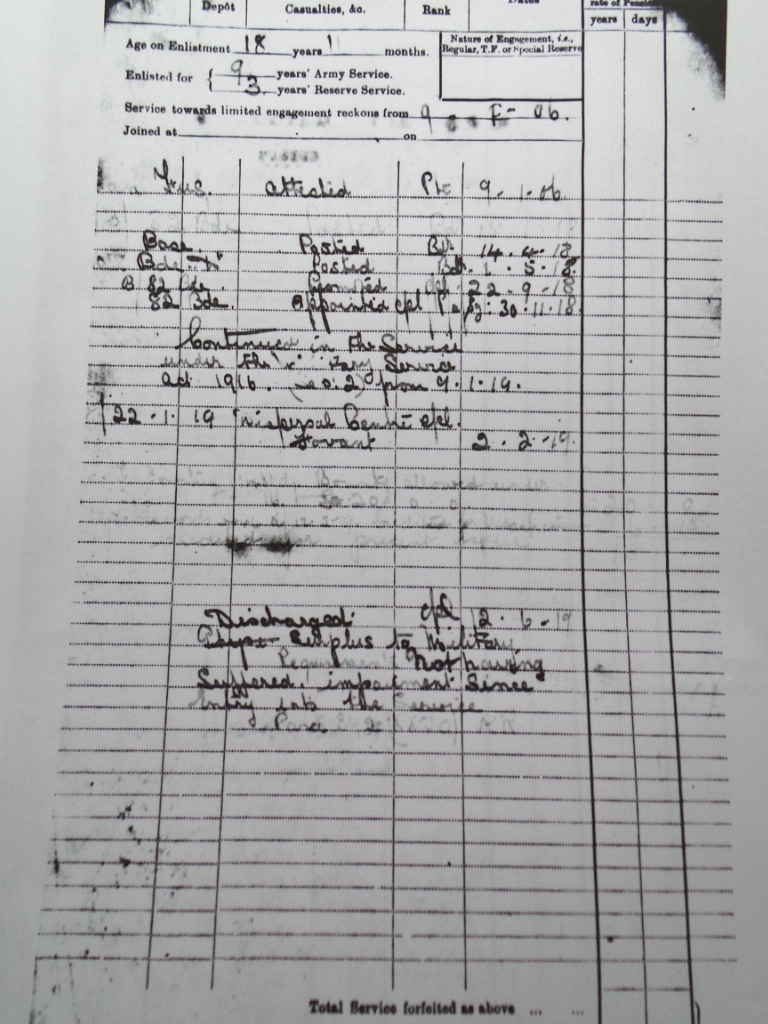 Depôt Casualties, &c. Rank Dates rate of Pension
years days
Age on Enlistment 18 years 11 months.
Nature of Engagement, i.e., Regular, T.F. or Special Reserve
Enlisted for { 9 years' Army Service.
3 years' Reserve Service.
Service towards limited engagement reckons from 9 06.
Joined at on
attested Pte 9 . 1 . 06
Base Posted Br. 14 . 4 . 18
Bde Posted Bdr. 1 . 5 . 18
B 82 Bde. 22 . 9 . 18
82 Bde. Appointed cpl 30 . 11 . 18
Continued in the Service
under the Service
act 1916. from 9 . 1 . 19.
22 . 1 . 19 Dispersal Centre cpl.
Fovant 2 . 2 . 19
Discharged cpl 12 . 6 . 19
Surplus to Military
Requirements Not having
Suffered impairment Since
entry into the Service
Para
Total Service forfeited as above ... ...